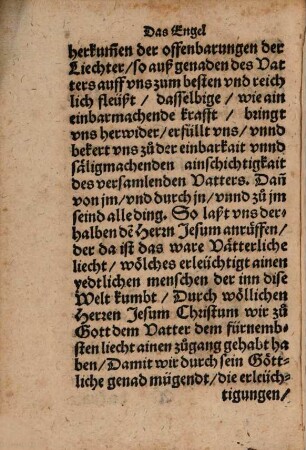 Das Engel
herkum̃en der offenbarungen der
Liechter/so auß genaden des Vat
ters auff vns zum besten vnd reich
lich fleüßt / dasselbige / wie ain
einbarmachende krafft / bringt
vns herwider/erfüllt vns/ vnnd
bekert vns zů der einbarkait vnnd
såligmachenden ainschichtigkait
des versamlenden Vatters. Dañ
von jm/vnd durch jn/vnnd zů jm
seind alle ding. So laßt vns der-
halben dē Herrn Jesum anrüffen/
der da ist das ware Vätterliche
liecht/wölches erleüchtigt ainen
yedtlichen menschen der inn dise
Welt kumbt / Durch wöllichen
Herren Jesum Christum wir zů
Gott dem Vatter dem fürnemb-
sten liecht ainen zůgang gehabt ha
ben/Damit wir durch sein Gött-
liche genad mügendt/die erleüch-
tigungen/